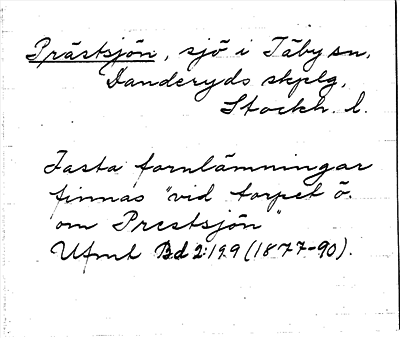 Prästsjön, sjö i Täby sn,
Danderyds skplg,
Stockh. l.
Fasta fornlämningar
finnas "vid torpet ö.
om Prestsjön"
Ufmt Bd 2:199 (1877-90).